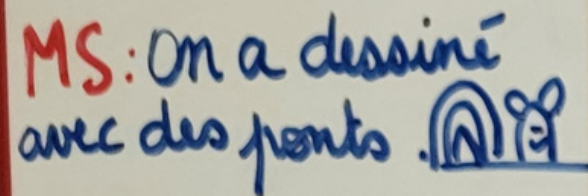 MS: On a dessiné
avec des ponts.